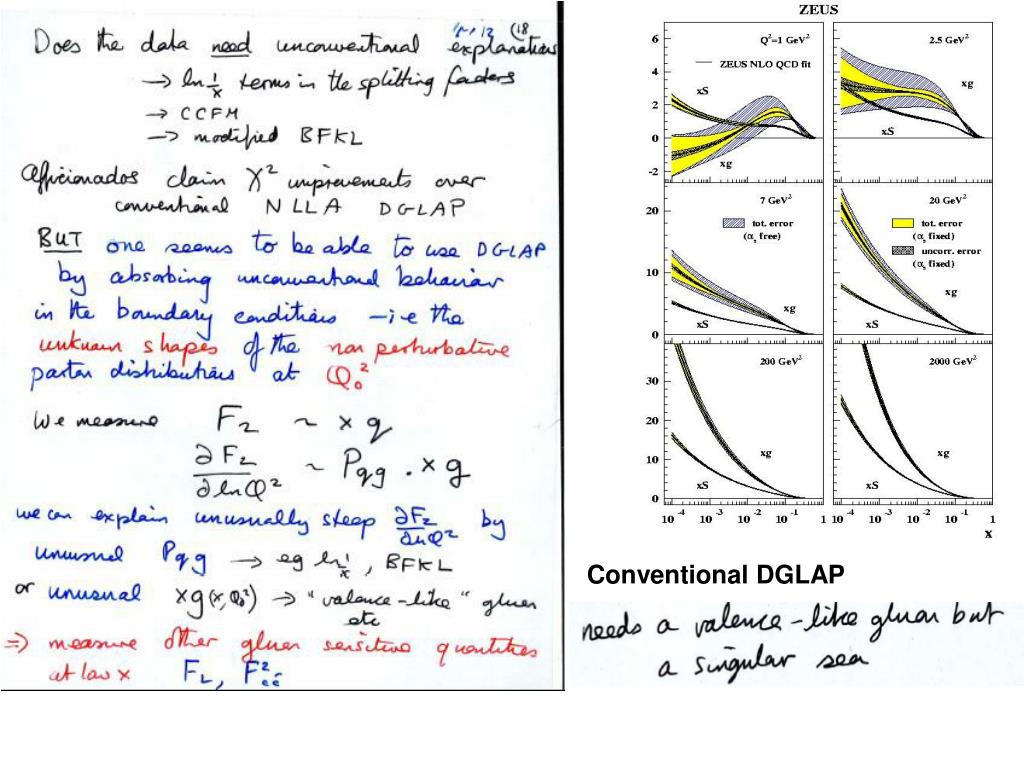 Does the data need unconventional explanations
→ ln 1/x terms in the splitting functions
→ CCFM
→ modified BFKL
Afficionados claim χ² improvements over
conventional NLLA DGLAP
BUT one seems to be able to use DGLAP
by absorbing unconventional behaviour
in the boundary conditions – i.e the
unknown shapes of the non perturbative
parton distributions at Q₀²
We measure F₂ ~ x q
∂F₂/∂lnQ² ~ Pqg . x g
we can explain unusually steep ∂F₂/∂lnQ² by
unusual Pqg → eg ln 1/x, BFKL
or unusual xg(x,Q₀²) → "valence-like" gluon
etc
⇒ measure other gluon sensitive quantities
at low x F_L, F₂
ZEUS
Q²=1 GeV² 2.5 GeV²
ZEUS NLO QCD fit
6
4
2
0
-2
xS
xg
xg
xS
7 GeV² 20 GeV²
tot. error (αs free)
tot. error (αs fixed)
uncorr. error (αs fixed)
20
10
0
xg
xS
xg
xS
200 GeV² 2000 GeV²
30
20
10
0
xg
xS
xg
xS
10⁻⁴ 10⁻³ 10⁻² 10⁻¹ 1 10⁻⁴ 10⁻³ 10⁻² 10⁻¹ 1
x
Conventional DGLAP
needs a valence-like gluon but
a singular sea